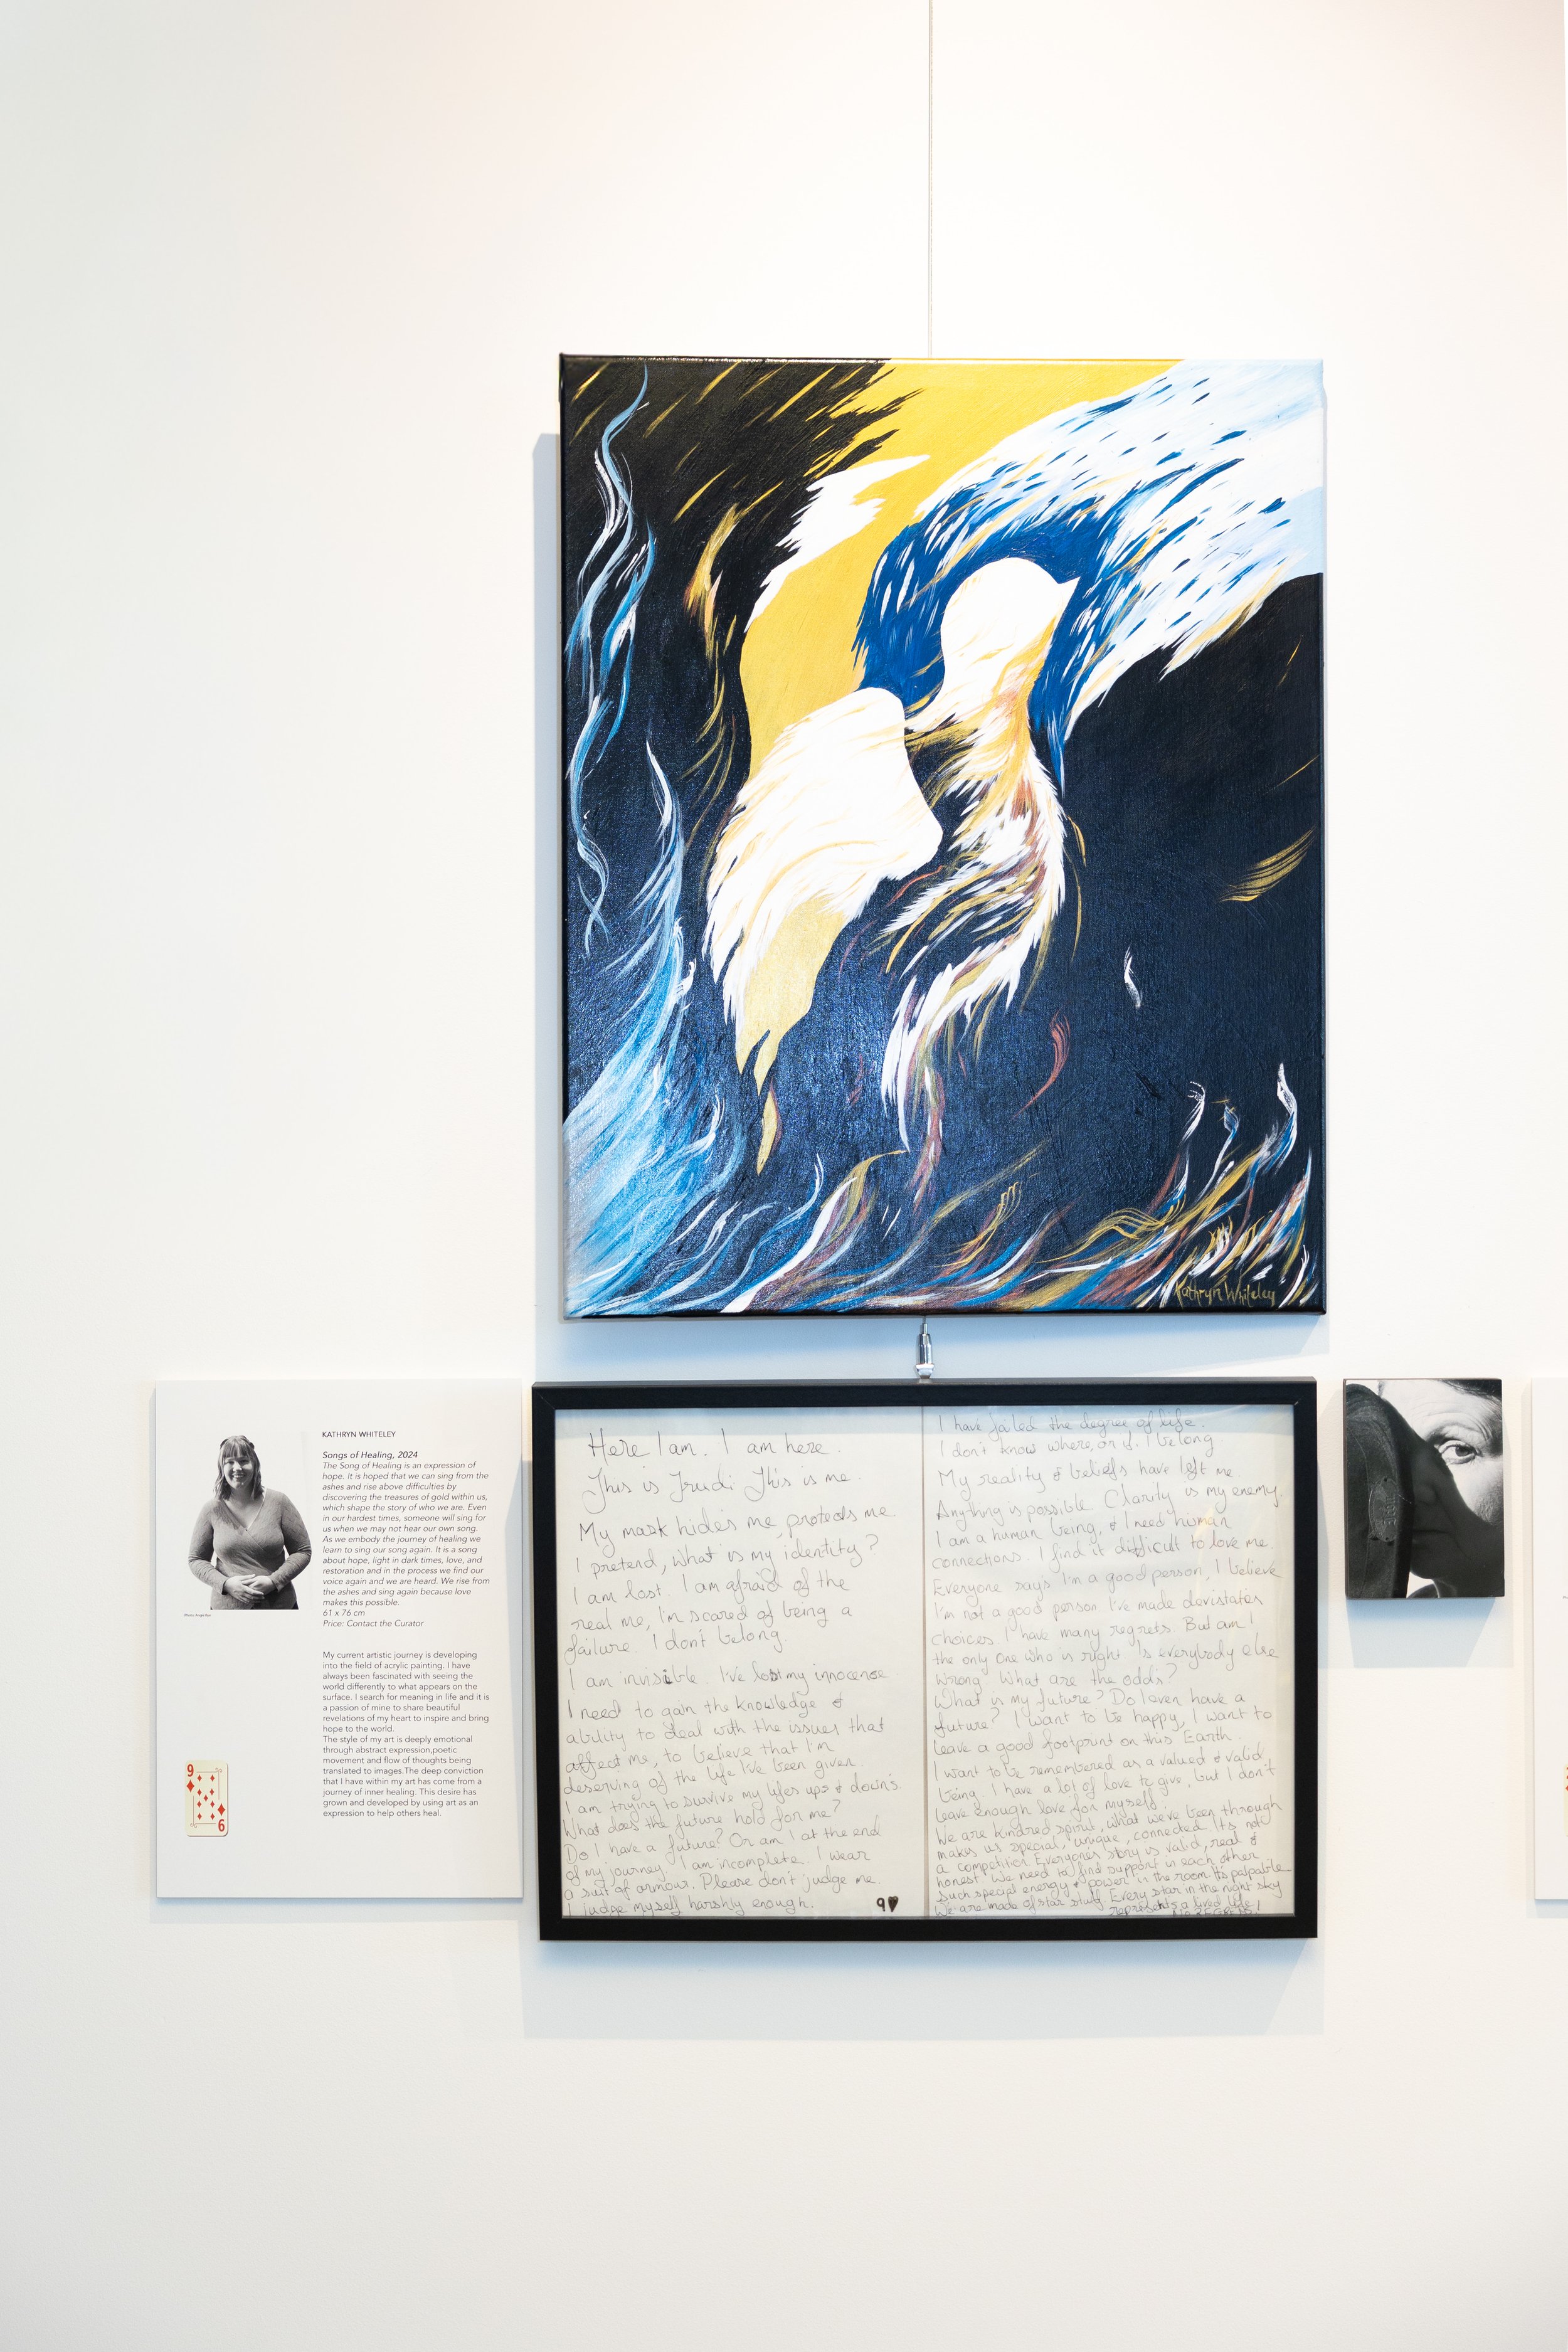 Kathryn Whiteley
KATHRYN WHITELEY
Songs of Healing, 2024
The Song of Healing is an expression of
hope. It is hoped that we can sing from the
ashes and rise above difficulties by
discovering the treasures of gold within us,
which shape the story of who we are. Even
in our hardest times, someone will sing for
us when we may not hear our own song.
As we embody the journey of healing we
learn to sing our song again. It is a song
about hope, light in dark times, love, and
restoration and in the process we find our
voice again and we are heard. We rise from
the ashes and sing again because love
makes this possible.
61 x 76 cm
Price: Contact the Curator
My current artistic journey is developing
into the field of acrylic painting. I have
always been fascinated with seeing the
world differently to what appears on the
surface. I search for meaning in life and it is
a passion of mine to share beautiful
revelations of my heart to inspire and bring
hope to the world.
The style of my art is deeply emotional
through abstract expression,poetic
movement and flow of thoughts being
translated to images.The deep conviction
that I have within my art has come from a
journey of inner healing. This desire has
grown and developed by using art as an
expression to help others heal.
9
9
Here I am. I am here.
This is Trudi This is me.
My mask hides me, protects me
I pretend, what is my identity?
I am lost. I am afraid of the
real me, I'm scared of being a
failure. I don't belong.
I am invisible. I've lost my innocence
I need to gain the knowledge &
ability to deal with the issues that
affect me, to believe that I'm
deserving of the life I've been given.
I am trying to survive my lifes ups & downs
What does the future hold for me?
Do I have a future? Or am I at the end
of my journey. I am incomplete. I wear
a suit of armour. Please don't judge me.
I judge myself harshly enough.
9♥
I have failed the degree of life.
I don't know where, or if I belong.
My reality & beliefs have left me.
Anything is possible. Clarity is my enemy.
I am a human being, & I need human
connections. I find it difficult to love me
Everyone says I'm a good person, I believe
I'm not a good person. I've made devistates
choices. I have many regrets. But am I
the only one who is right. Is everybody else
wrong. What are the odds?
What is my future? Do I even have a
future? I want to be happy, I want to
leave a good footprint on this Earth.
I want to be remembered as a valued & valid
being. I have a lot of love to give, but I don't
leave enough love for myself.
We are kindred spirit, what we've been through
makes us special, unique, connected. Its not
a competition. Everyones story is valid, real &
honest. We need to find support in each other
Such special energy & power in the room its palpable
We are made of star stuff. Every star in the night sky
represents a lived life